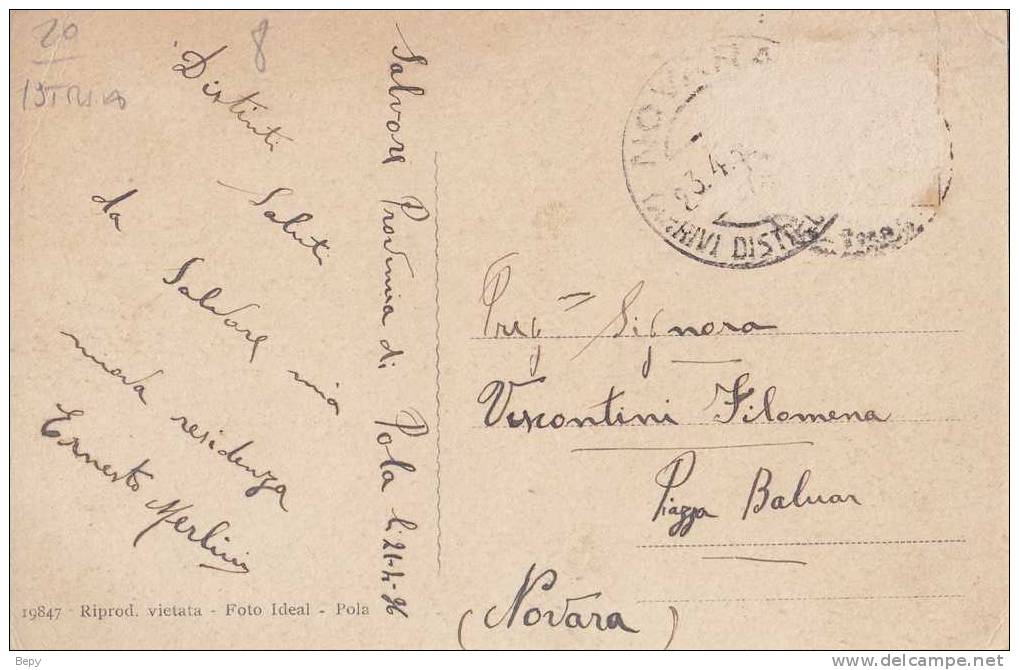 20
8
ISTRIA
Distinti
Saluti
da
Salvore mia
nuova residenza
Ernesto Merlini
Salvore Provincia di Pola li 21-4-36
19847 - Riprod. vietata - Foto Ideal - Pola
NOVARA
23.4.
ARRIVI DIST
Preg Signora
Viscontini Filomena
Piazza Baluar
(Novara)
Bepy
www.delcampe.net